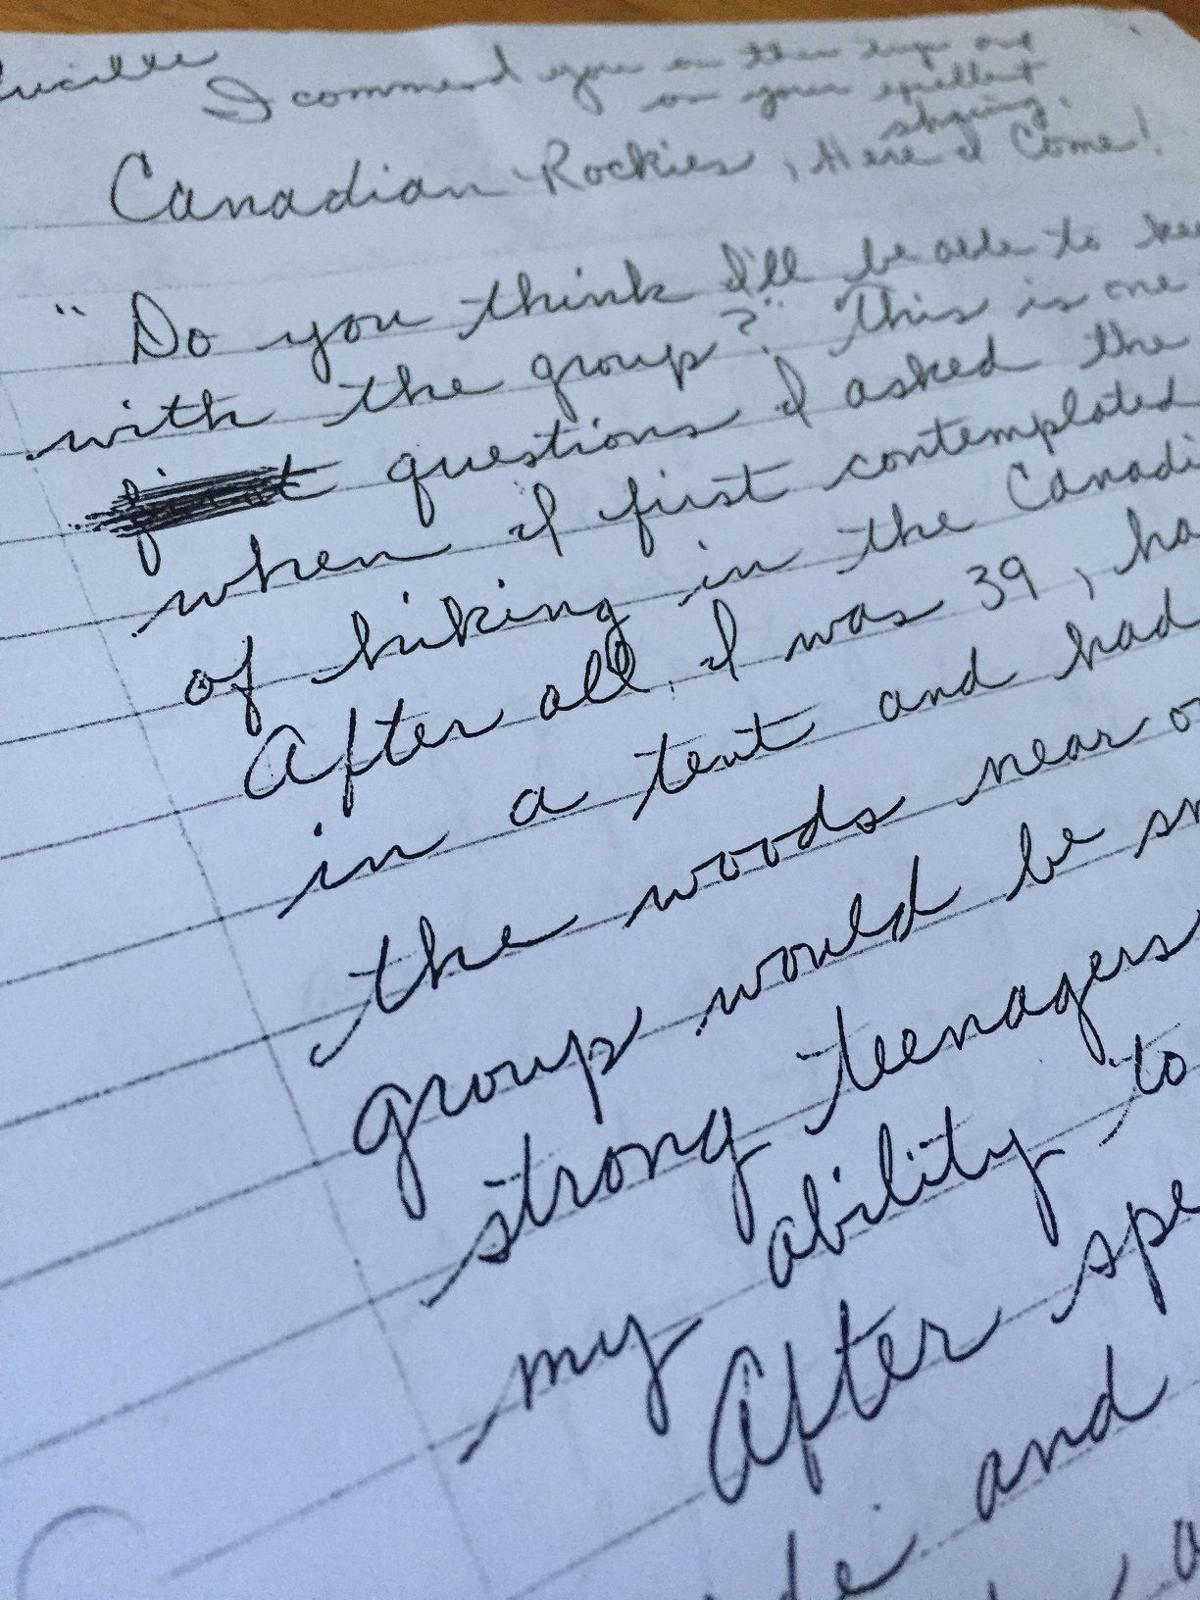 Lucille
I commend you on this hope and
on your excellent
sharing.
Canadian Rockies, Here I Come!
"Do you think I'll be able to kee
with the group?" This is one
first questions I asked the
when I first contemplated
of hiking in the Canadi
After all, I was 39, ha
in a tent and had
the woods near o
group would be sm
strong teenagers
my ability to
After spe
de and